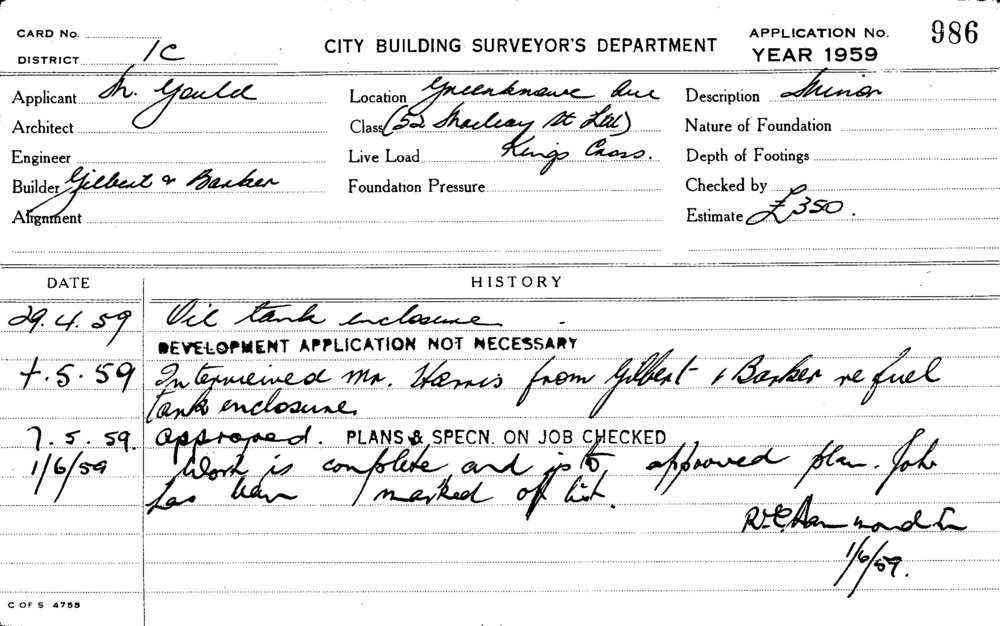 CARD No.
DISTRICT 1C
CITY BUILDING SURVEYOR'S DEPARTMENT
APPLICATION No. 986
YEAR 1959
Applicant M. Gould
Location Greenknowe Ave
Description Minor
Architect
Class (52 Macleay St Ltd)
Nature of Foundation
Engineer
Live Load Kings Cross.
Depth of Footings
Builder Gilbert & Barker
Foundation Pressure
Checked by
Alignment
Estimate £350.
DATE HISTORY
29.4.59 Oil tank enclosure
DEVELOPMENT APPLICATION NOT NECESSARY
7.5.59 Interviewed Mr. Harris from Gilbert & Barker re fuel
tank enclosure
7.5.59. approved. PLANS & SPECN. ON JOB CHECKED
1/6/59 Work is complete and is to approved plan. Job
has been marked off list.
1/6/59.
C OF S 4755